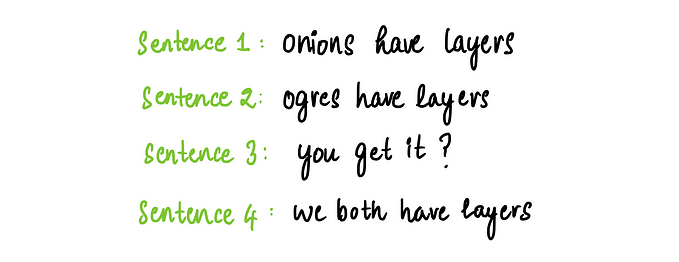 Sentence 1: onions have layers
Sentence 2: ogres have layers
Sentence 3: you get it?
Sentence 4: we both have layers